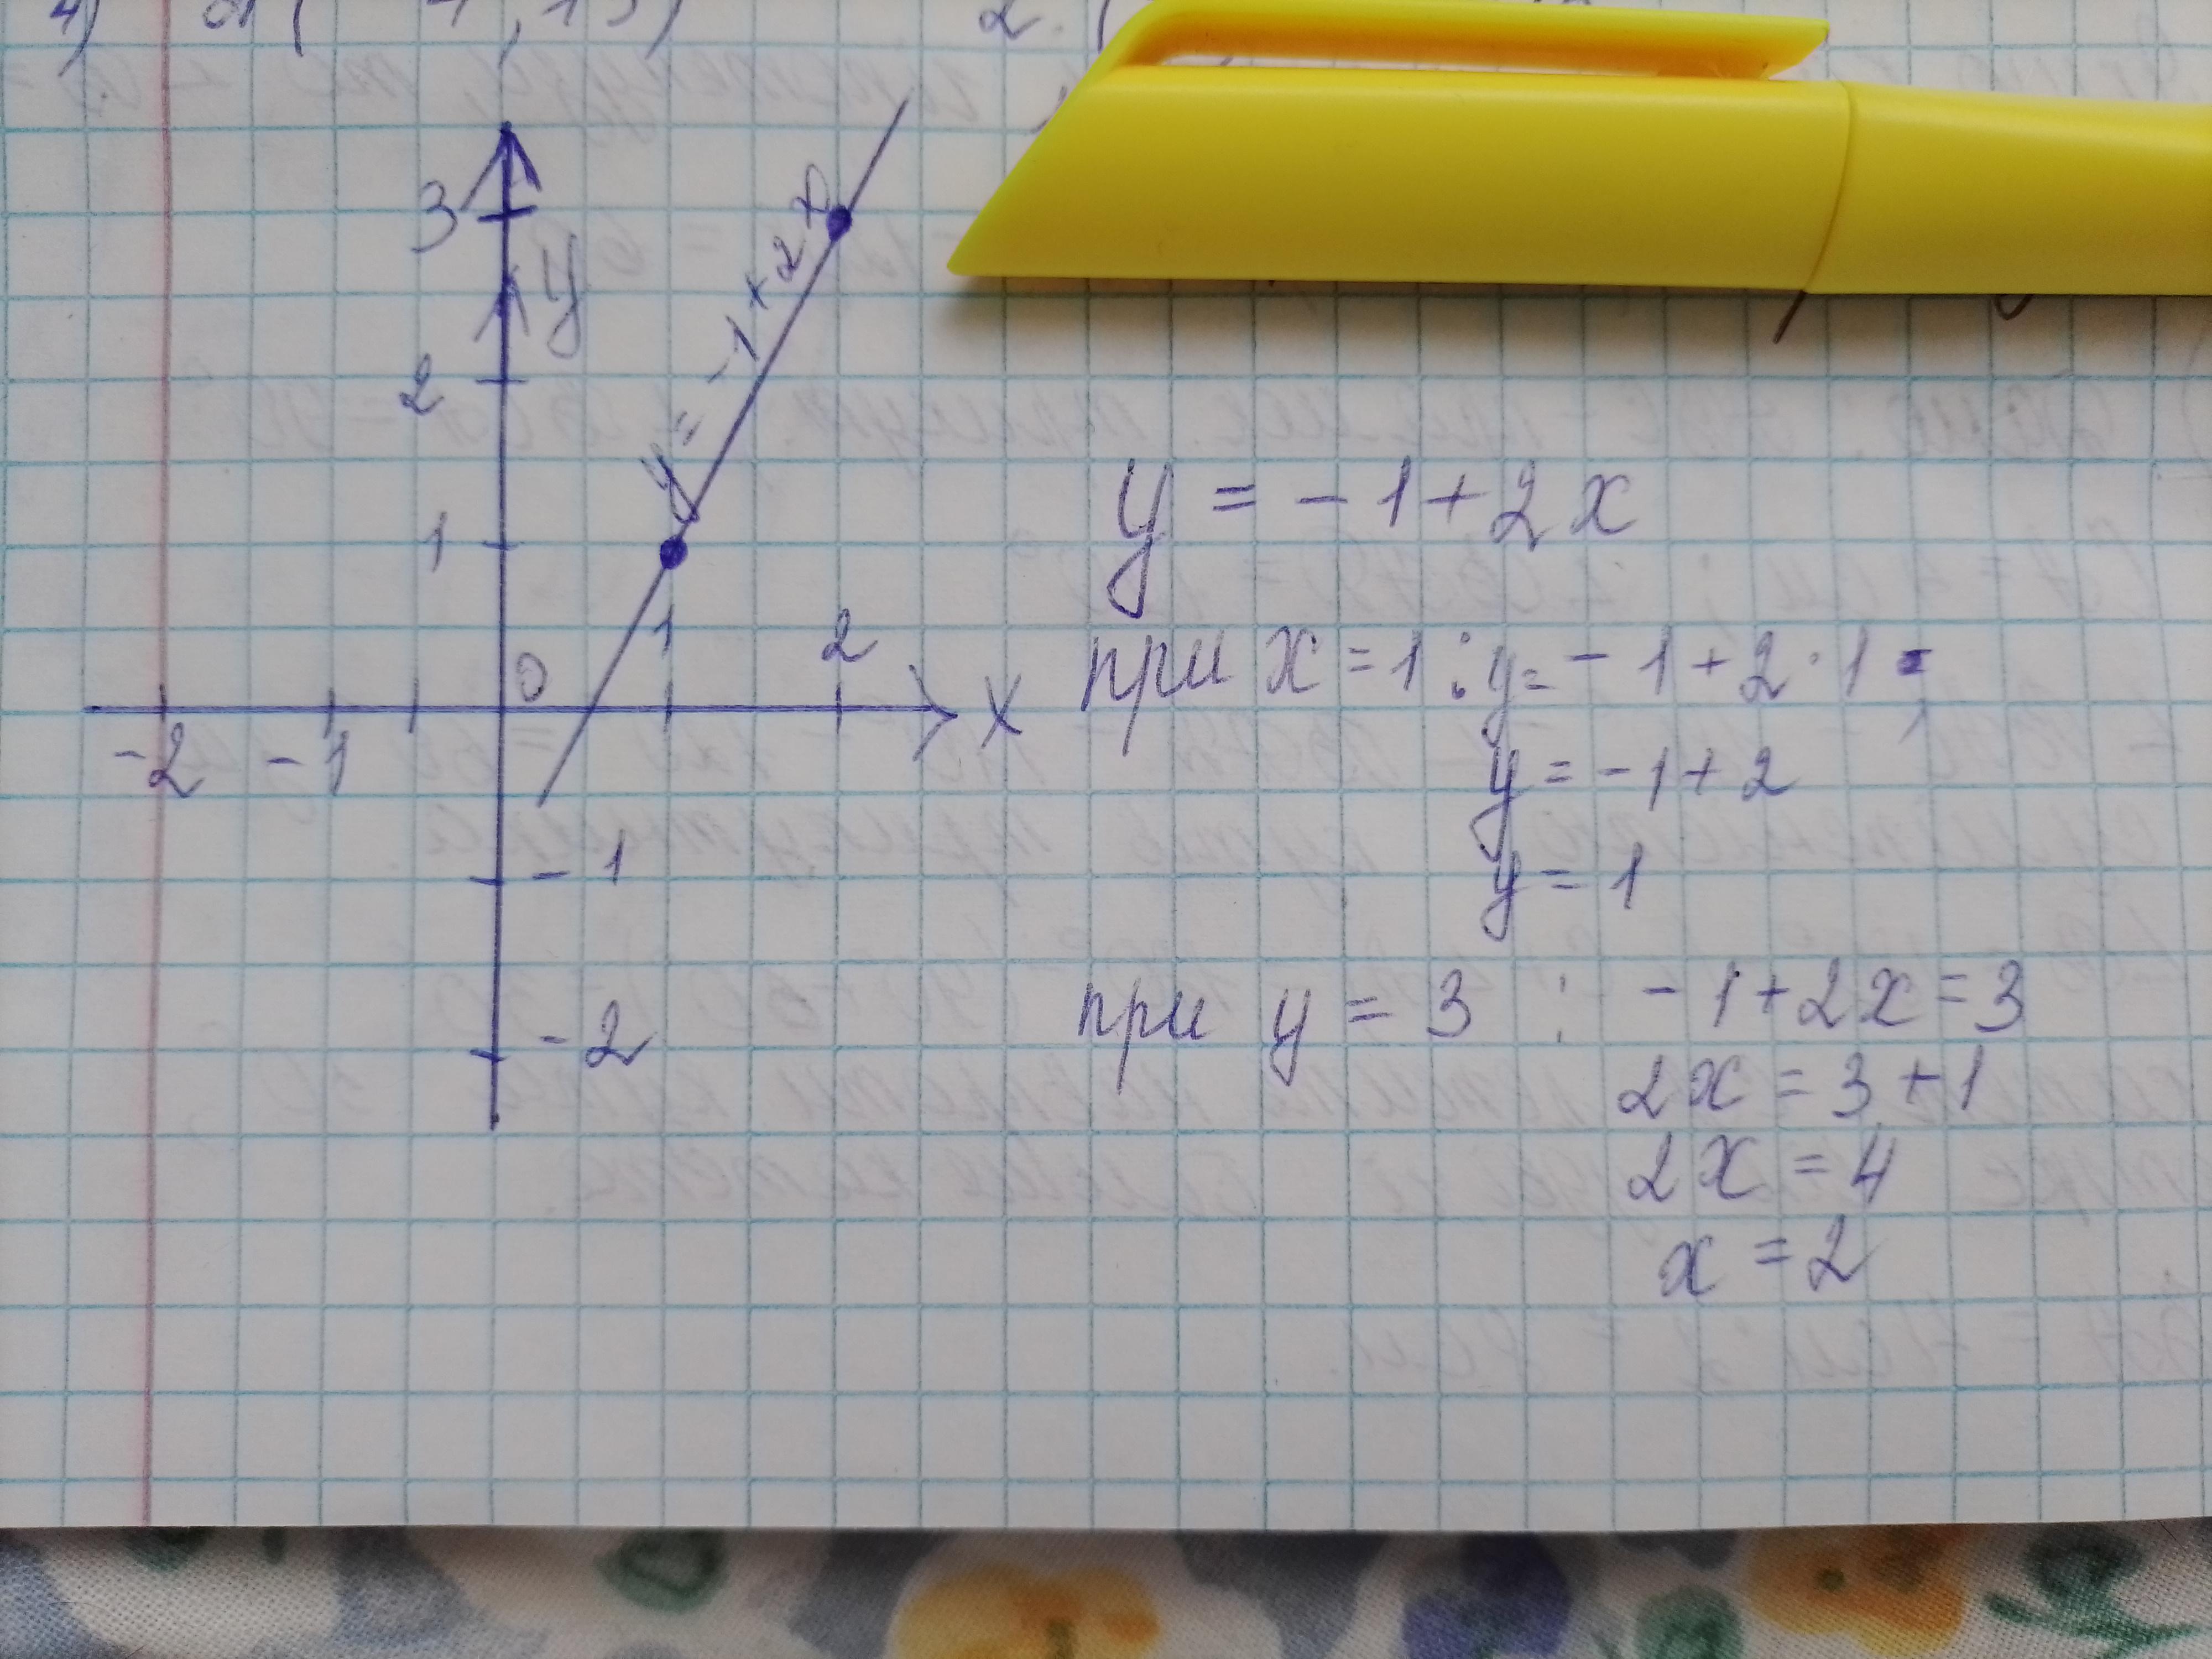 3
y
2
y = -1 + 2x
1
1
2
0
x
-2 -1
-1
-2
y = -1 + 2x
при x = 1 : y = -1 + 2 · 1
y = -1 + 2
y = 1
при y = 3 : -1 + 2x = 3
2x = 3 + 1
2x = 4
x = 2